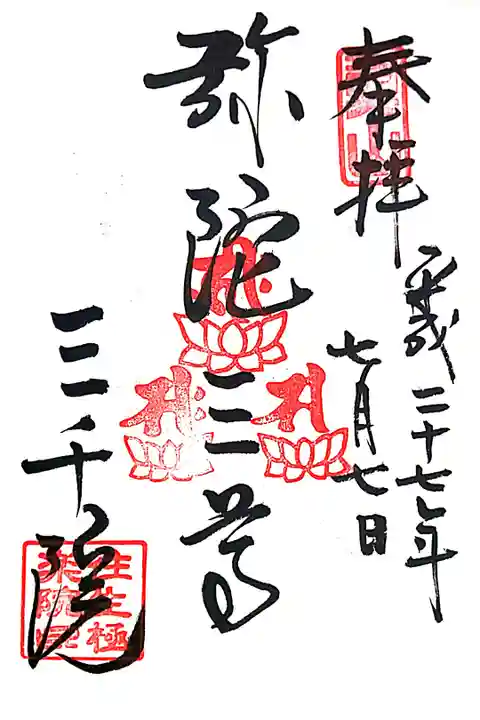 奉拝
平成二十七年
七月七日
弥陀三尊
三千院
往生極
楽院印